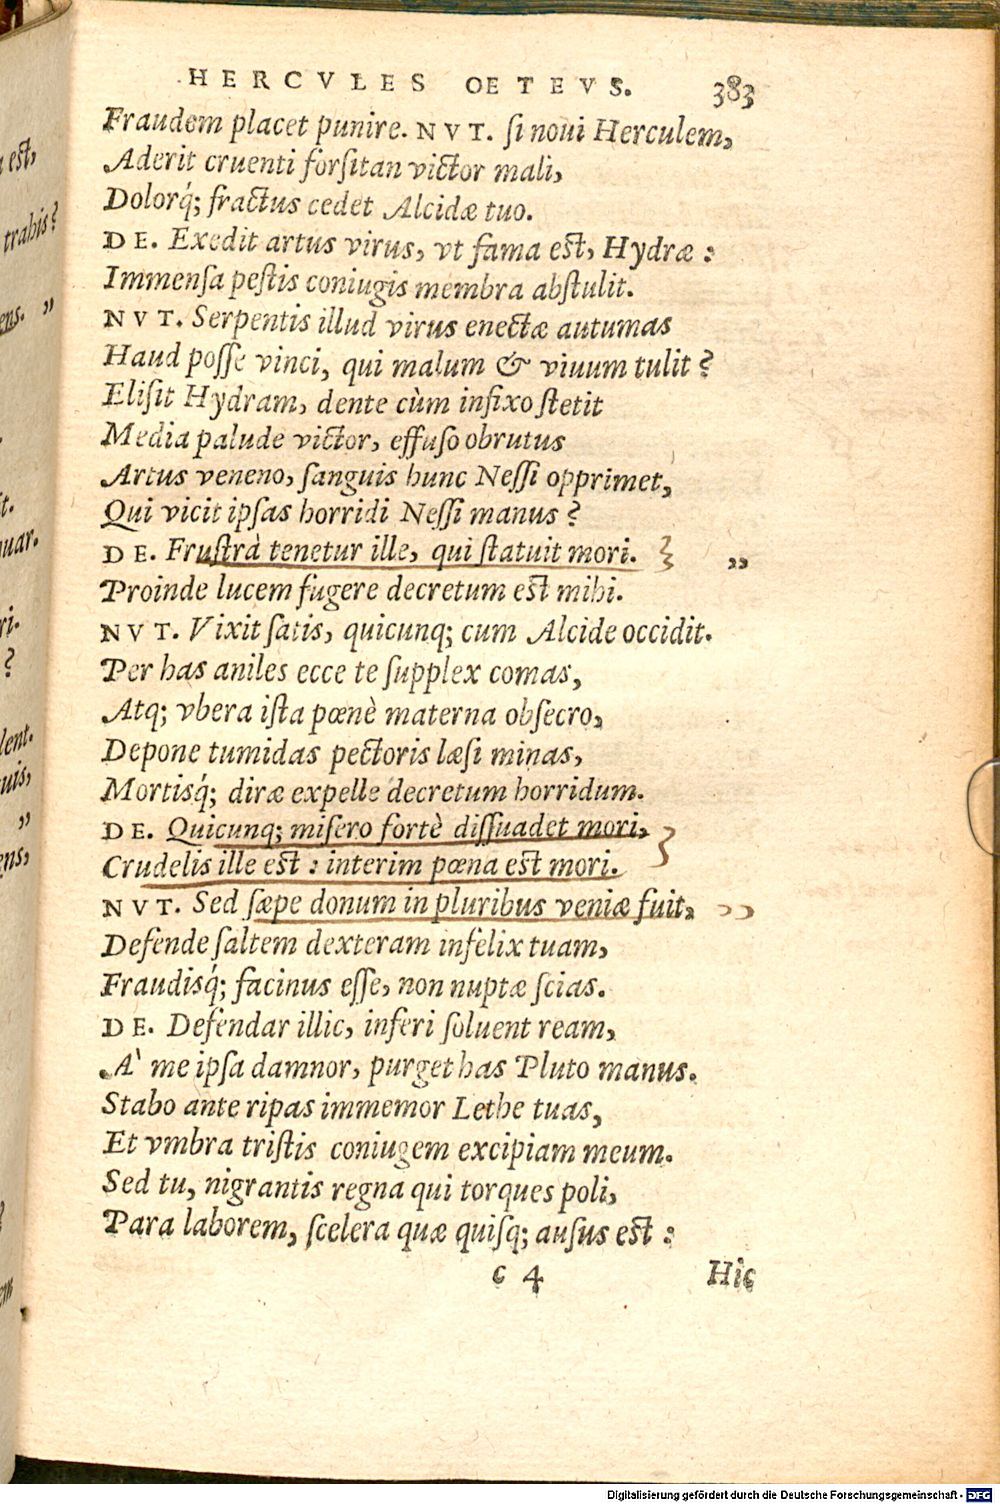 HERCVLES OETEVS. 383
Fraudem placet punire. NVT. ſi noui Herculem,
Aderit cruenti forſitan victor mali,
Dolorq́; fractus cedet Alcidæ tuo.
DE. Exedit artus virus, vt fama est, Hydræ:
Immenſa peſtis coniugis membra abſtulit.
NVT. Serpentis illud virus enectæ autumas
Haud poſſe vinci, qui malum & viuum tulit?
Eliſit Hydram, dente cùm infixo ſtetit
Media palude victor, effuſo obrutus
Artus veneno, ſanguis hunc Neſſi opprimet,
Qui vicit ipſas horridi Neſſi manus?
DE. Fruſtrà tenetur ille, qui ſtatuit mori. „
Proinde lucem fugere decretum est mihi.
NVT. Vixit ſatis, quicunq; cum Alcide occidit.
Per has aniles ecce te ſupplex comas,
Atq; vbera iſta pœnè materna obſecro,
Depone tumidas pectoris læſi minas,
Mortisq́; diræ expelle decretum horridum.
DE. Quicunq; miſero fortè diſſuadet mori,
Crudelis ille est: interim pœna est mori.
NVT. Sed ſæpe donum in pluribus veniæ fuit,
Defende ſaltem dexteram infelix tuam,
Fraudisq́; facinus eſſe, non nuptæ ſcias.
DE. Defendar illic, inferi ſoluent ream,
A` me ipſa damnor, purget has Pluto manus.
Stabo ante ripas immemor Lethe tuas,
Et vmbra triſtis coniugem excipiam meum.
Sed tu, nigrantis regna qui torques poli,
Para laborem, ſcelera quæ quiſq; auſus est:
c 4 Hic
est,
trahis?
ens. „
t.
uar.
ri.
?
lent.
uis,
„
ens,
Digitalisierung gefördert durch die Deutsche Forschungsgemeinschaft - DFG